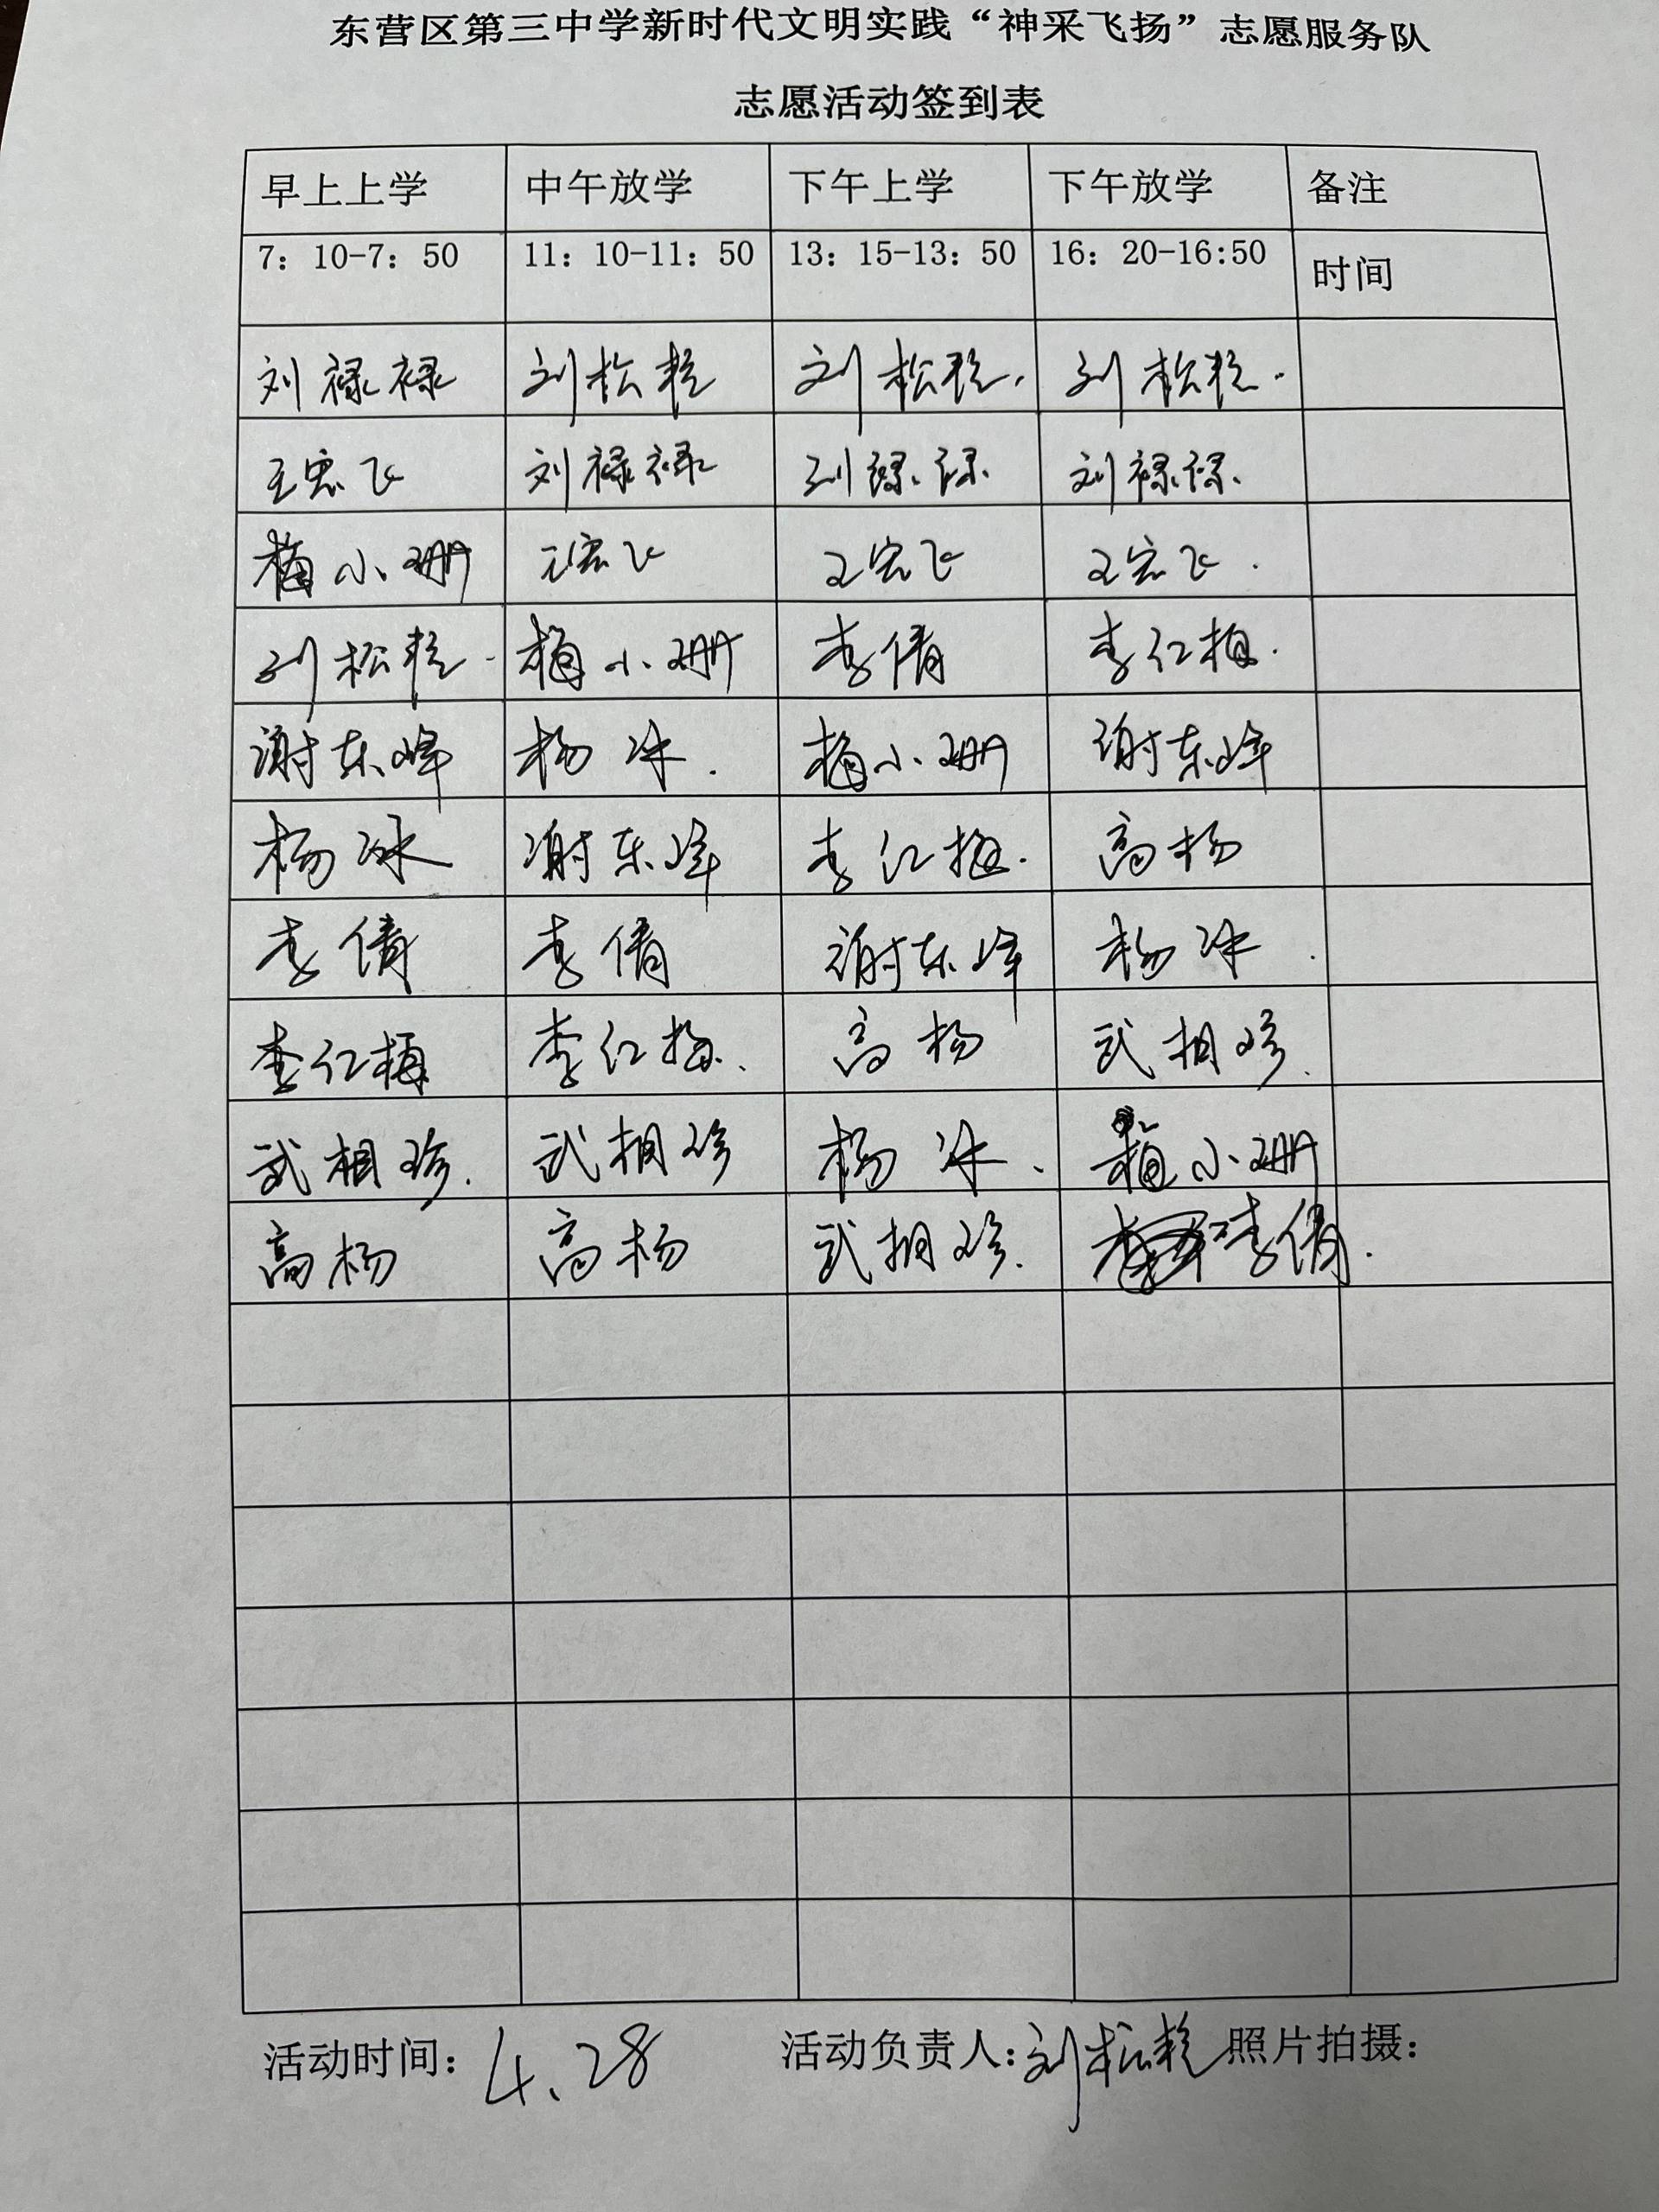 东营区第三中学新时代文明实践“神采飞扬”志愿服务队
志愿活动签到表
早上上学 中午放学 下午上学 下午放学 备注
7：10-7：50 11：10-11：50 13：15-13：50 16：20-16:50 时间
刘禄禄 刘松 刘松 刘松
王宏飞 刘禄禄 刘禄禄 刘禄禄
梅小珊 王宏飞 王宏飞 王宏飞
刘松 梅小珊 李倩 李红梅
谢东峰 杨冰 梅小珊 谢东峰
杨冰 谢东峰 李红梅 高杨
李倩 李倩 谢东峰 杨冰
李红梅 李红梅 高杨 武相珍
武相珍 武相珍 杨冰 梅小珊
高杨 高杨 武相珍 李倩
活动时间：4.28 活动负责人：刘松 照片拍摄：